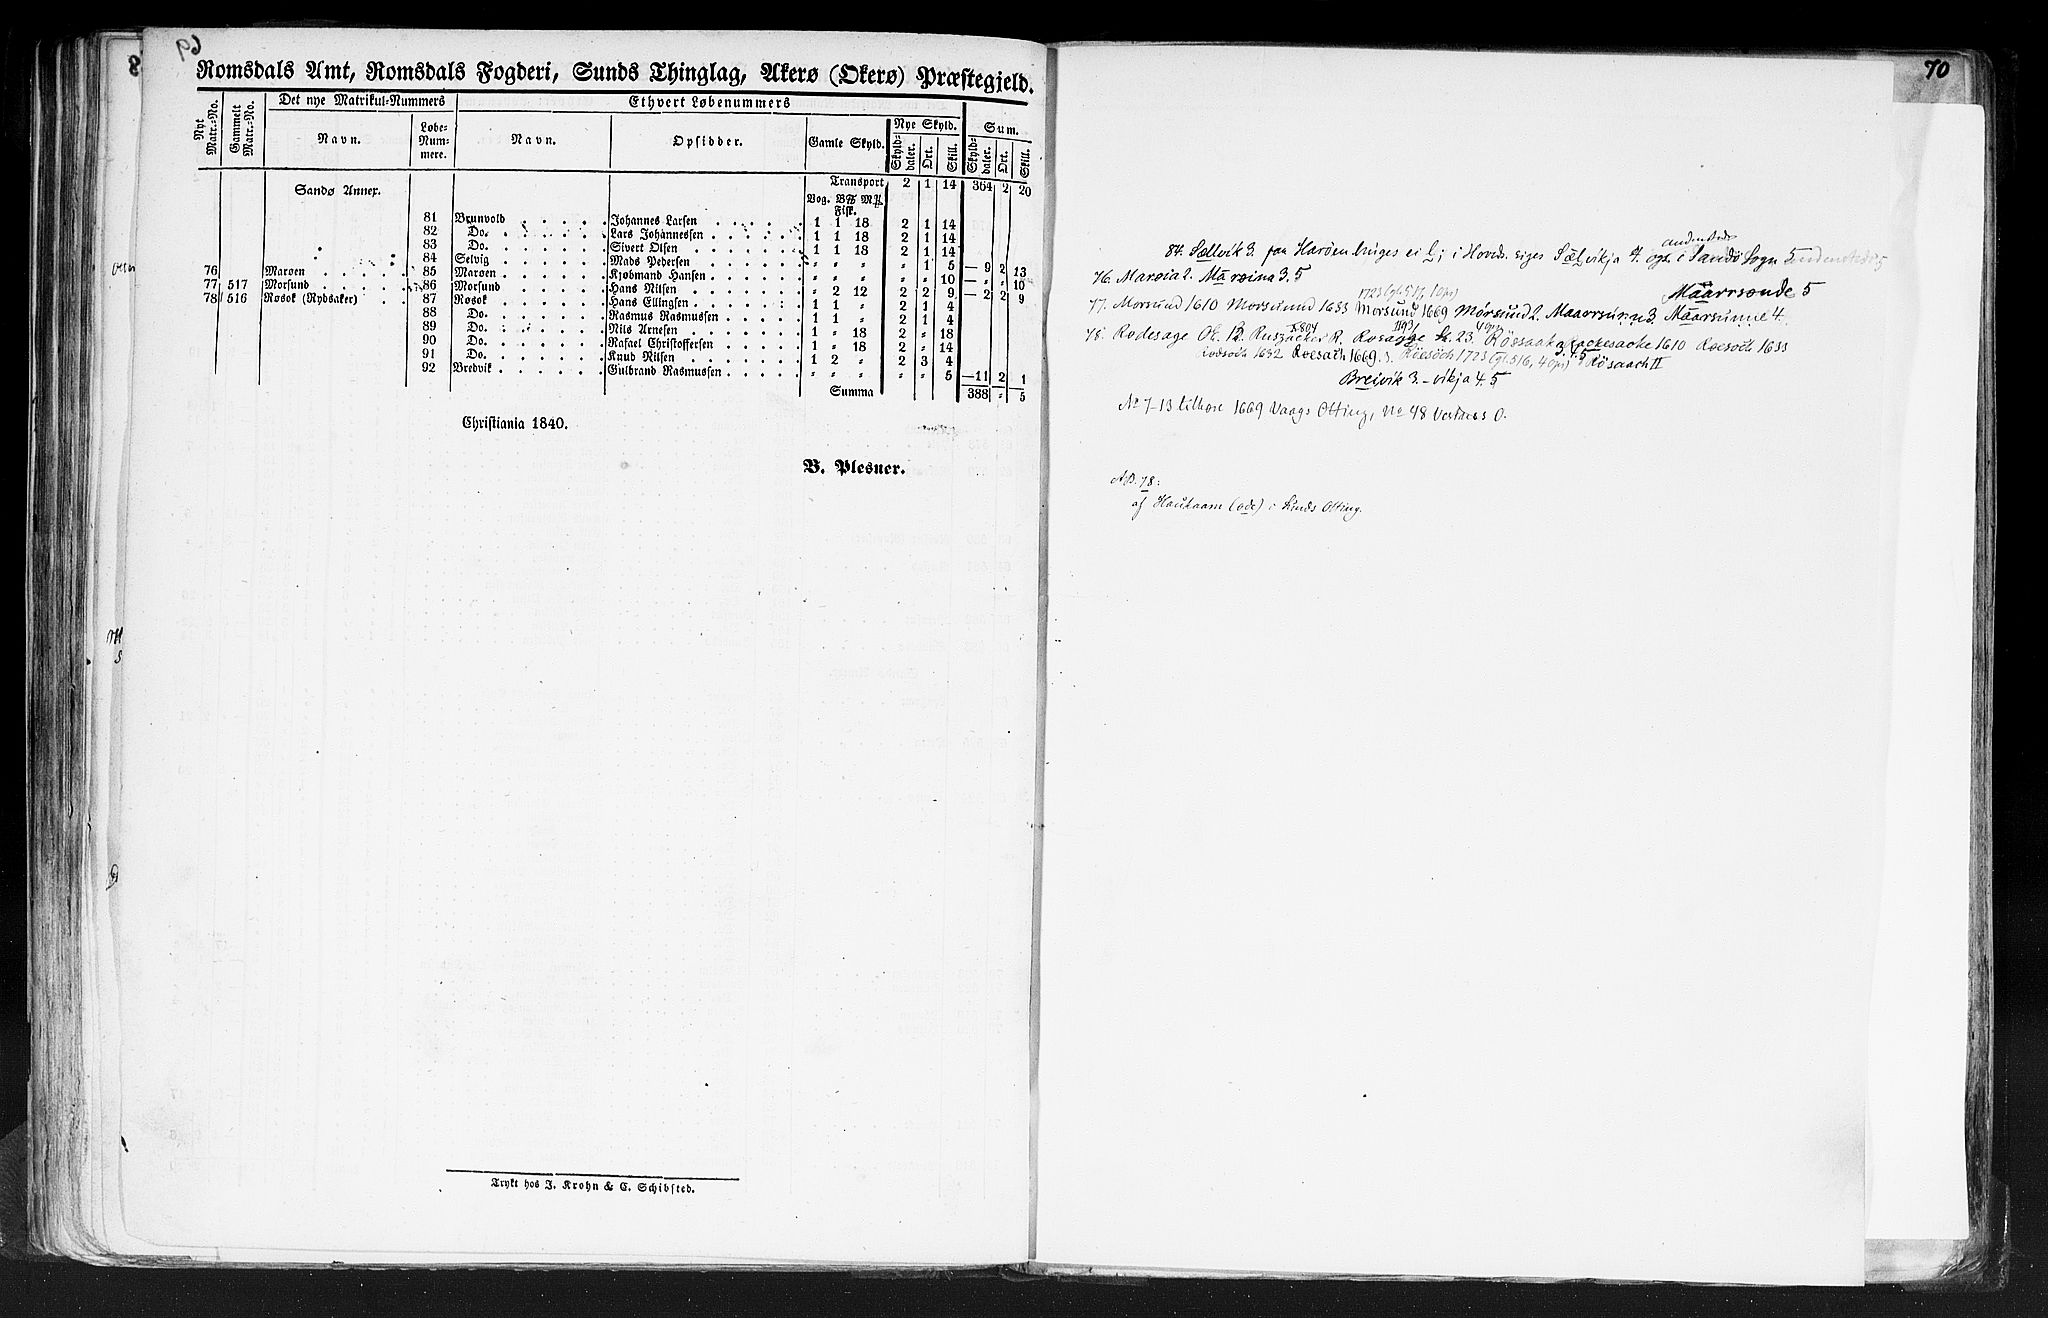 69
Romsdals Amt, Romsdals Fogderi, Sunds Thinglag, Akerø (Okerø) Præstegjeld.
Nyt Matr.-No. Gammelt Matr.-No. Det nye Matrikul-Nummers Ethvert Løbenummers
Navn. Løbe-Num-mere. Navn. Opsidder. Gamle Skyld. Nye Skyld. Sum.
Skyld-daler. Ort. Skill. Skyld-daler. Ort. Skill.
Sandø Annex. Transport 2 1 14 364 2 20
Vog. B℔ M℔. Fisk.
81 Brunvold Johannes Larsen 1 1 18 2 1 14
82 Do. Lars Johannessen 1 1 18 2 1 14
83 Do. Sivert Olsen 1 1 18 2 1 14
84 Selvig Mads Pedersen " " " " 1 5 — 9 2 13
76 Marøen 85 Marøen Kjøbmand Hansen " " " " " 10 — " " 10
77 517 Morsund 86 Morsund Hans Nilsen " 2 12 2 2 9 — 2 2 9
78 516 Røsok (Rydsaker) 87 Røsok Hans Ellingsen 1 1 " 2 1 4
88 Do. Rasmus Rasmussen 1 1 " 2 1 4
89 Do. Nils Arnesen 1 " 18 2 " 18
90 Do. Rafael Christoffersen 1 " 18 2 " 14
91 Do. Knud Nilsen 1 2 " 2 3 4
92 Bredvik Gulbrand Rasmussen " " " " " 5 — 11 2 1
Summa 388 " 5
Christiania 1840.
B. Plesner.
Trykt hos J. Krohn & C. Schibsted.
70
84. Sællvik 3. paa Harøen bruges ei L; i Hoveds. siges Sælvikja 4. ogs. i Sandø Sogn 5
andensteds
76. Marøia 2. Marøina 3. 5
Maarrsonde 5
1723 (gl. 517, 1 opr)
77. Morsund 1610 Morsuund 1633 Morsund 1669 Mørsund 2. Maarrsunn 3. Maarsunne 4.
78. Rodesage O. 12. Ruszacker R. Rosagge Sk. 23. Rössaak 1610 Roesoch 1633
Rodsoch 1632 Roesach 1669. Röesöch 1723 (gl. 516, 4 opr) Rösaach II
Breivik 3. -vikja 4. 5
No 7-13 tilhøre 1669 Vaags Otting, No 48 Vestnes O.
N.B. 78:
af Haukaam (øde) i Sunds Otting.